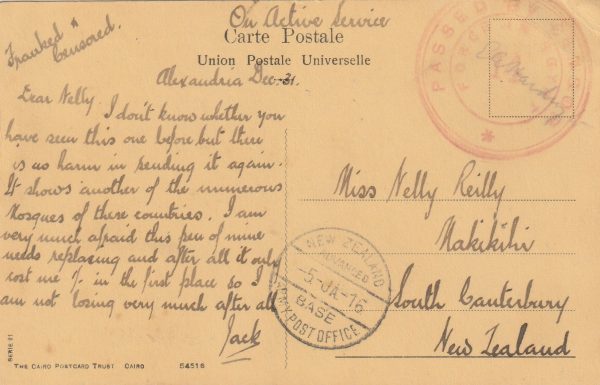 Franked &
Censored.
On Active Service
Carte Postale
Union Postale Universelle
PASSED BY
Alexandria Dec. 31.
Dear Nelly
I don't know whether you
have seen this one before but there
is no harm in sending it again.
It shows another of the numerous
Mosques of these countries. I am
very much afraid this pen of mine
needs replacing and after all it only
cost me 1/- in the first place so I
am not losing very much after all
Jack
Miss Nelly Reilly
Makikihi
South Canterbury
New Zealand
NEW ZEALAND
ADVANCED
-5. JA-16
BASE
ARMY POST OFFICE
SERIE 21
THE CAIRO POSTCARD TRUST CAIRO
54516